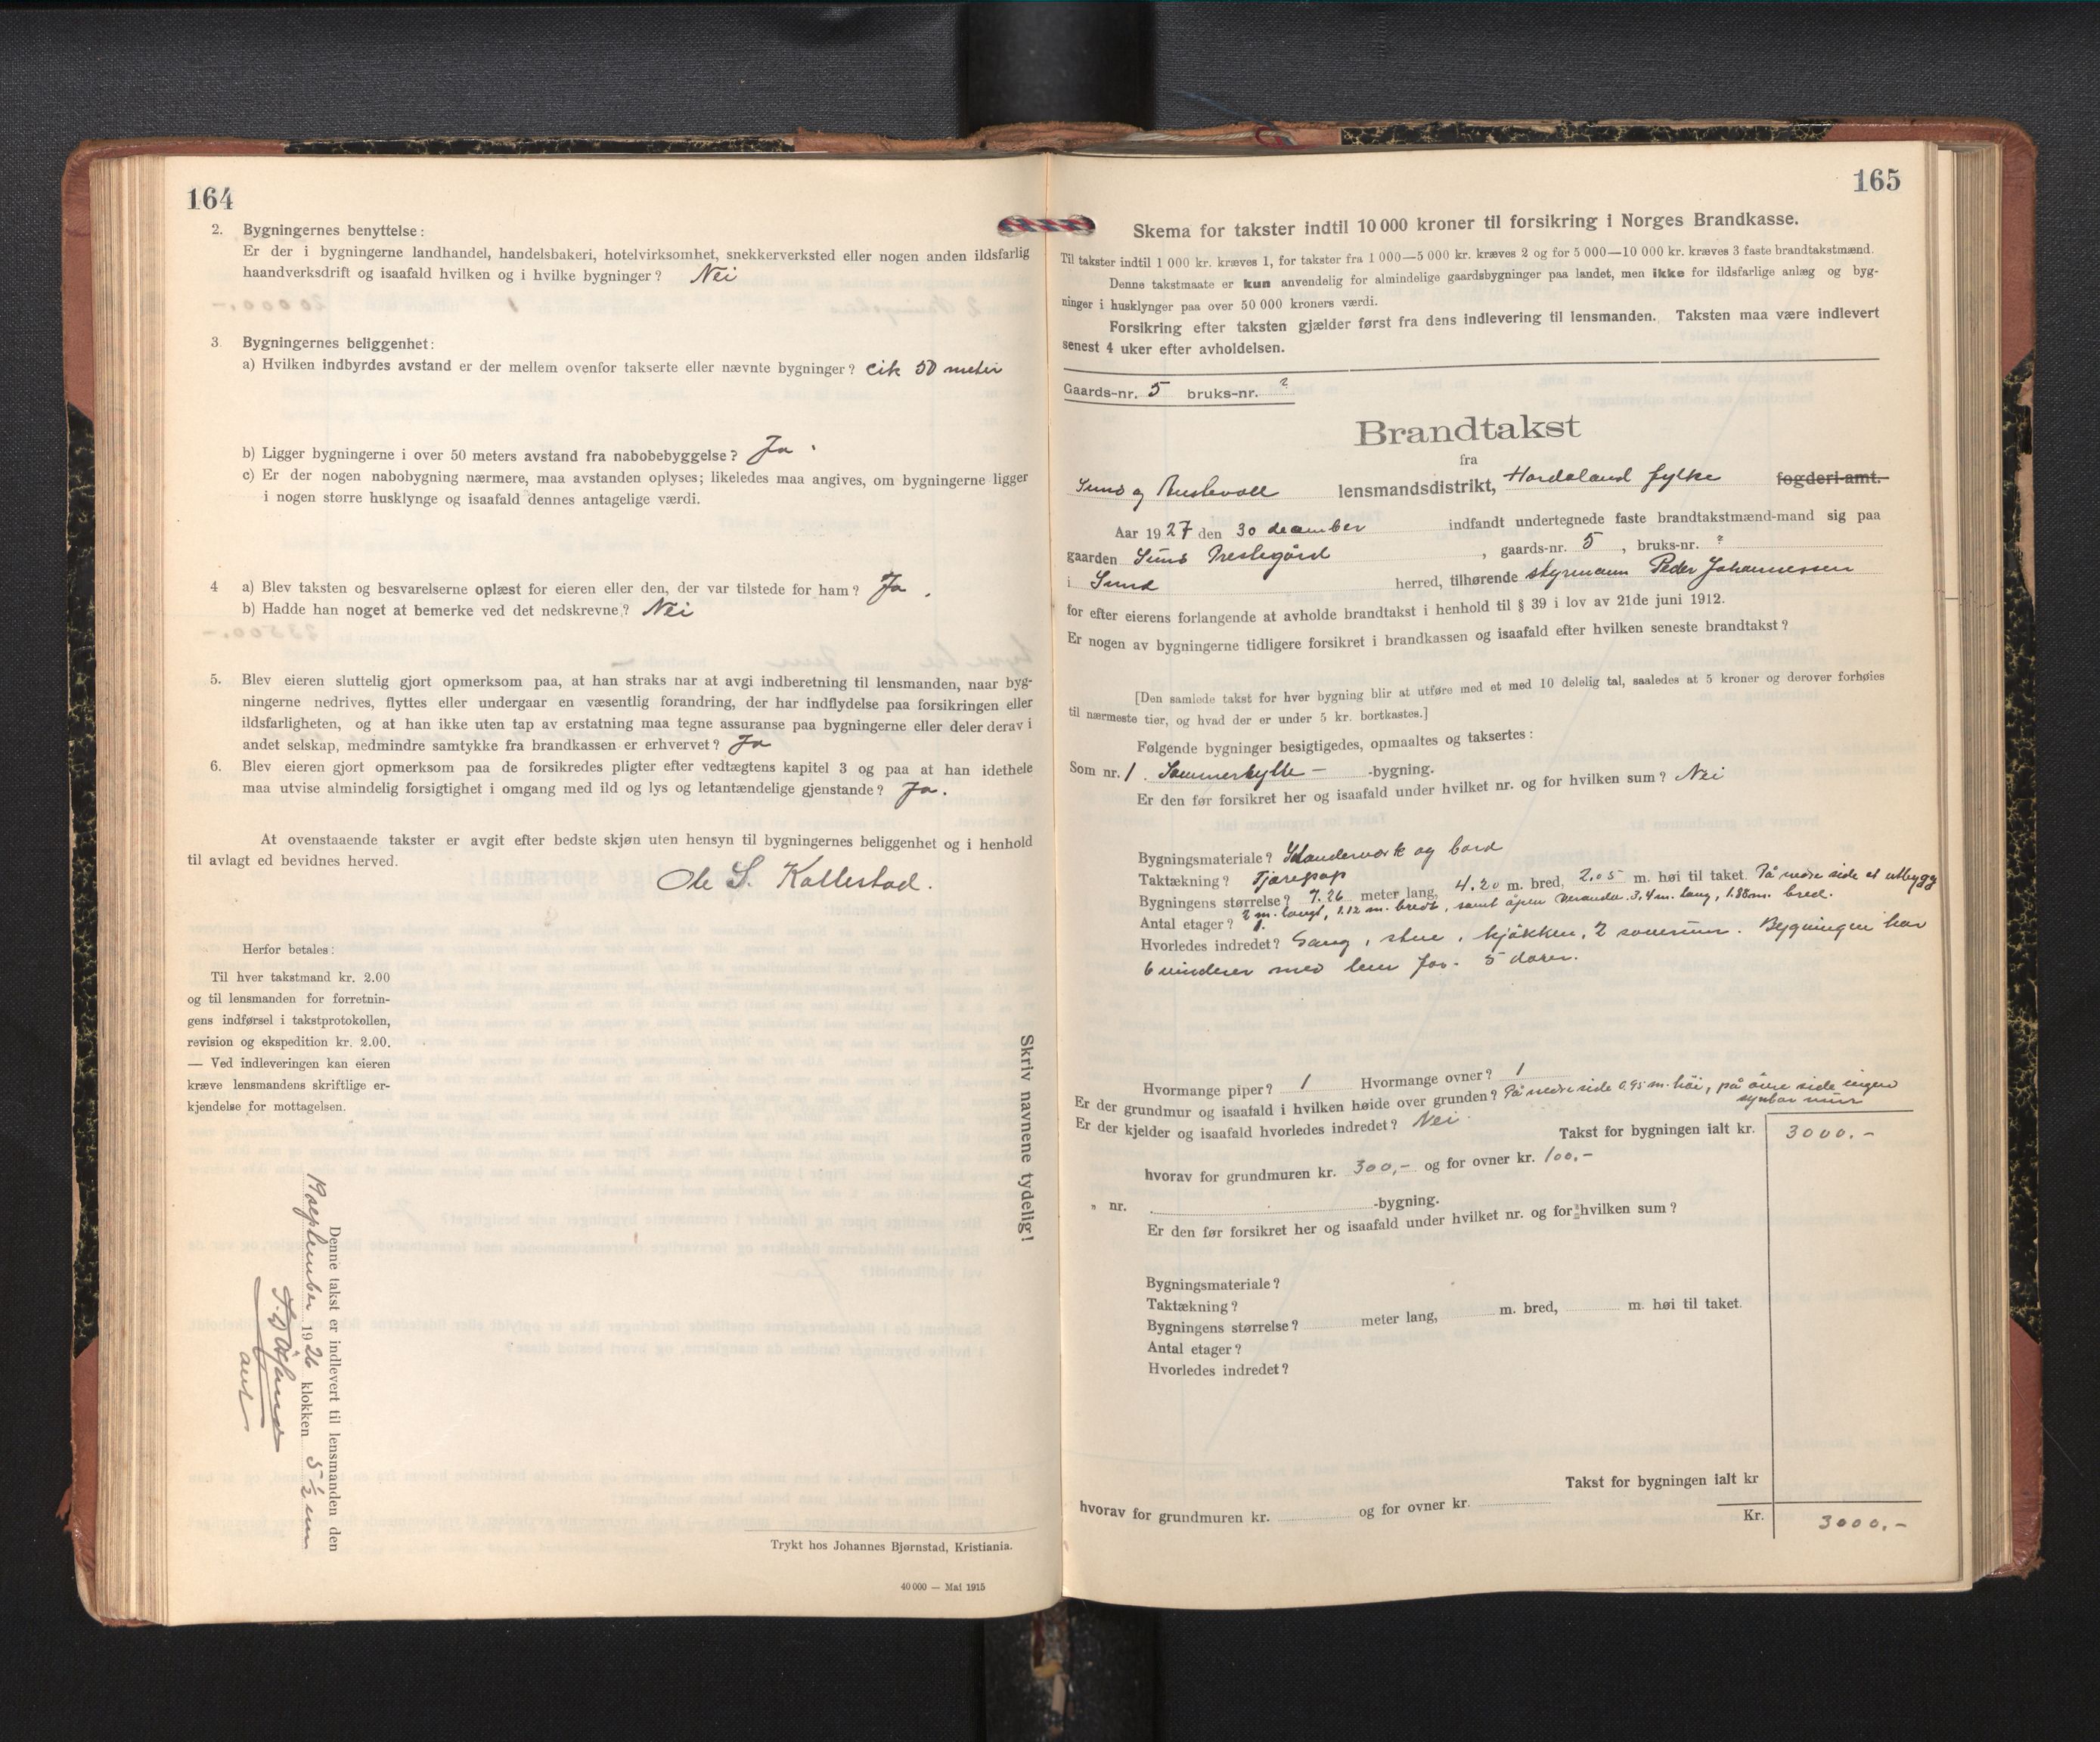 164
2. Bygningernes benyttelse:
Er der i bygningerne landhandel, handelsbakeri, hotelvirksomhet, snekkerverksted eller nogen anden ildsfarlig
haandverksdrift og isaafald hvilken og i hvilke bygninger? Nei
3. Bygningernes beliggenhet:
a) Hvilken indbyrdes avstand er der mellem ovenfor takserte eller nævnte bygninger? cik 50 meter
b) Ligger bygningerne i over 50 meters avstand fra nabobebyggelse? Ja
c) Er der nogen nabobygning nærmere, maa avstanden oplyses; likeledes maa angives, om bygningerne ligger
i nogen større husklynge og isaafald dennes antagelige værdi.
4 a) Blev taksten og besvarelserne oplæst for eieren eller den, der var tilstede for ham? Ja.
b) Hadde han noget at bemerke ved det nedskrevne? Nei
5. Blev eieren sluttelig gjort opmerksom paa, at han straks nar at avgi indberetning til lensmanden, naar byg-
ningerne nedrives, flyttes eller undergaar en væsentlig forandring, der har indflydelse paa forsikringen eller
ildsfarligheten, og at han ikke uten tap av erstatning maa tegne assuranse paa bygningerne eller deler derav i
andet selskap, medmindre samtykke fra brandkassen er erhvervet? Ja
6. Blev eieren gjort opmerksom paa de forsikredes pligter efter vedtægtens kapitel 3 og paa at han idethele
maa utvise almindelig forsigtighet i omgang med ild og lys og letantændelige gjenstande? Ja.
At ovenstaaende takster er avgit efter bedste skjøn uten hensyn til bygningernes beliggenhet og i henhold
til avlagt ed bevidnes herved.
Ole S. Kallestad.
Herfor betales:
Til hver takstmand kr. 2.00
og til lensmanden for forretnin-
gens indførsel i takstprotokollen,
revision og ekspedition kr. 2.00.
— Ved indleveringen kan eieren
kræve lensmandens skriftlige er-
kjendelse for mottagelsen.
Skriv navnene tydelig!
Denne takst er indlevert til lensmanden den
september 1926 klokken 5 1/2 em
Trykt hos Johannes Bjørnstad, Kristiania.
40 000 — Mai 1915
165
Skema for takster indtil 10 000 kroner til forsikring i Norges Brandkasse.
Til takster indtil 1 000 kr. kræves 1, for takster fra 1 000—5 000 kr. kræves 2 og for 5 000—10 000 kr. kræves 3 faste brandtakstmænd.
Denne takstmaate er kun anvendelig for almindelige gaardsbygninger paa landet, men ikke for ildsfarlige anlæg og byg-
ninger i husklynger paa over 50 000 kroners værdi.
Forsikring efter taksten gjælder først fra dens indlevering til lensmanden. Taksten maa være indlevert
senest 4 uker efter avholdelsen.
Gaards-nr. 5 bruks-nr. ?
Brandtakst
fra
Sund og Austevoll lensmandsdistrikt, Hordaland fylke fogderi-amt.
Aar 1927 den 30 december indfandt undertegnede faste brandtakstmænd-mand sig paa
gaarden Sund Prestegård, gaards-nr. 5, bruks-nr. ?
i Sund herred, tilhørende styrmann Peder Johannessen
for efter eierens forlangende at avholde brandtakst i henhold til § 39 i lov av 21de juni 1912.
Er nogen av bygningerne tidligere forsikret i brandkassen og isaafald efter hvilken seneste brandtakst?
[Den samlede takst for hver bygning blir at utføre med et med 10 delelig tal, saaledes at 5 kroner og derover forhøies
til nærmeste tier, og hvad der er under 5 kr. bortkastes.]
Følgende bygninger besigtigedes, opmaaltes og taksertes:
Som nr. 1. Sommerhytte - -bygning.
Er den før forsikret her og isaafald under hvilket nr. og for hvilken sum? Nei
Bygningsmateriale? og bord
Taktækning? Tjærepap
Bygningens størrelse? 7.26 meter lang, 4.20 m. bred, 2.05 m. høi til taket. På nedre side et utbygg
2 m. langt, 1.12 m. bredt, samt åpen veranda 3,4 m. lang, 1.88 m. bred.
Antal etager? 1.
Hvorledes indredet? Gang, stue, kjøkken, 2 soverum. Bygningen har
6 vinduer med fag. 5 dører.
Hvormange piper? 1 Hvormange ovner? 1
Er der grundmur og isaafald i hvilken høide over grunden? På nedre side 0,95 m. høi, på øvre side ingen
synbar mur
Er der kjelder og isaafald hvorledes indredet? Nei
Takst for bygningen ialt kr. 3000.-
hvorav for grundmuren kr. 300,- og for ovner kr. 100.-
„ nr. -bygning.
Er den før forsikret her og isaafald under hvilket nr. og for hvilken sum?
Bygningsmateriale?
Taktækning?
Bygningens størrelse? meter lang, m. bred, m. høi til taket.
Antal etager?
Hvorledes indredet?
Takst for bygningen ialt kr
hvorav for grundmuren kr. og for ovner kr.
Kr. 3000.-